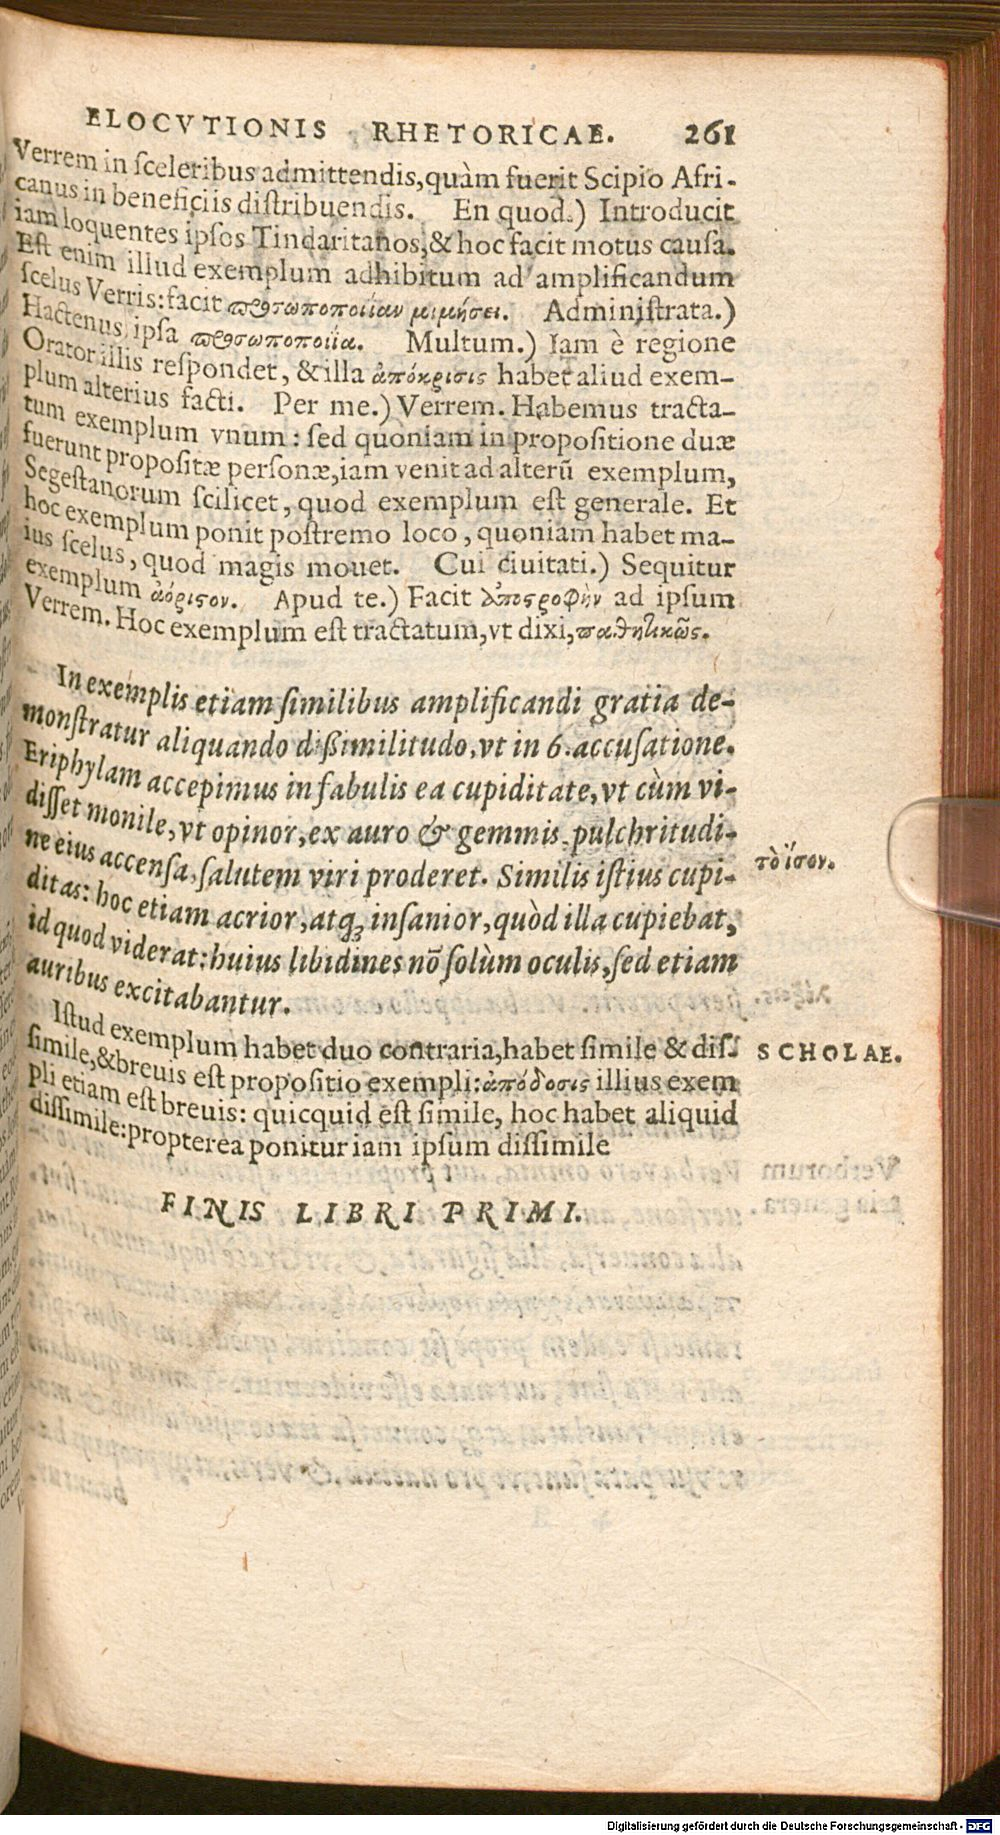 ELOCVTIONIS RHETORICAE. 261
Verrem in sceleribus admittendis, quàm fuerit Scipio Afri-
canus in beneficiis distribuendis. En quod.) Introducit
iam loquentes ipsos Tindaritanos, & hoc facit motus causa.
Est enim illud exemplum adhibitum ad amplificandum
scelus Verris: facit προσωποποιίαν μιμήσει. Administrata.)
Hactenus ipsa προσωποποιία. Multum.) Iam è regione
Orator illis respondet, & illa ἀπόκρισις habet aliud exem-
plum alterius facti. Per me.) Verrem. Habemus tracta-
tum exemplum vnum: sed quoniam in propositione duæ
fuerunt propositæ personæ, iam venit ad alterũ exemplum,
Segestanorum scilicet, quod exemplum est generale. Et
hoc exemplum ponit postremo loco, quoniam habet ma-
ius scelus, quod magis mouet. Cui ciuitati.) Sequitur
exemplum ἀόριστον. Apud te.) Facit ἀποστροφὴν ad ipsum
Verrem. Hoc exemplum est tractatum, vt dixi, παθητικῶς.
In exemplis etiam similibus amplificandi gratia de-
monstratur aliquando dißimilitudo, vt in 6. accusatione.
Eriphylam accepimus in fabulis ea cupiditate, vt cùm vi-
disset monile, vt opinor, ex auro & gemmis, pulchritudi-
ne eius accensa, salutem viri proderet. Similis istius cupi-
ditas: hoc etiam acrior, atq; insanior, quòd illa cupiebat,
id quod viderat: huius libidines nõ solùm oculis, sed etiam
auribus excitabantur.
τὸ ἴσον.
Istud exemplum habet duo contraria, habet simile & dis-
simile, & breuis est propositio exempli: ἀπόδοσις illius exem
pli etiam est breuis: quicquid est simile, hoc habet aliquid
dissimile: propterea ponitur iam ipsum dissimile
SCHOLAE.
FINIS LIBRI PRIMI.
Digitalisierung gefördert durch die Deutsche Forschungsgemeinschaft - DFG